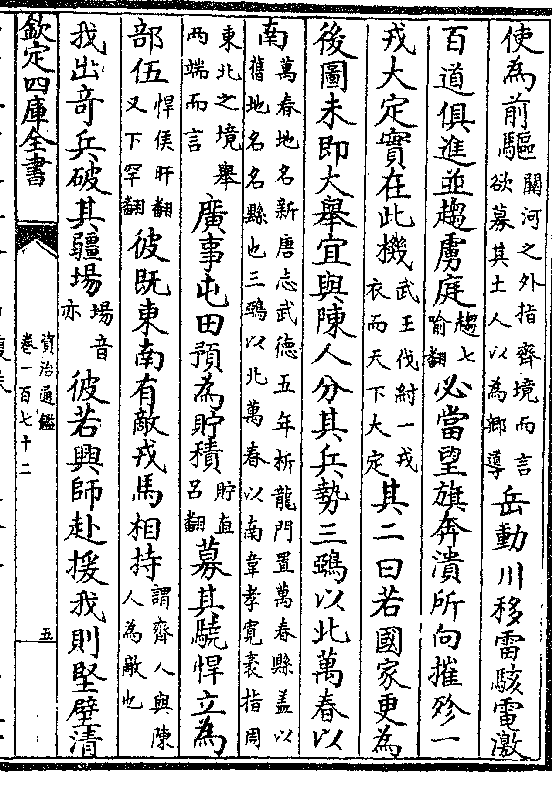 使為前驅關河之外指齊境而言欲募其土人以為鄉導岳動川移雷駭雷激
百道俱進並趨虜庭趨七喻翻必當望旗奔潰所向摧殄一
戎大定實在此機武王伐紂一戎衣而天下大定其二曰若國家更為
後圖未即大舉宜與陳人分其兵勢三鵶以北萬春以
南萬春地名新唐志武德五年析龍門置萬春縣盖以舊地名名縣也三鵶以北萬春以南韋孝寛袤指周
東北之境舉兩端而言廣事屯田預為貯積貯直呂翻募其驍悍立為
部伍悍侯旰翻又下罕翻彼既東南有敵戎馬相持謂齊人與陳人為敵也
我出竒兵破其疆場場音亦彼若興師赴援我則堅壁清
欽定四庫全書
資治通鑑
卷一百七十二
五